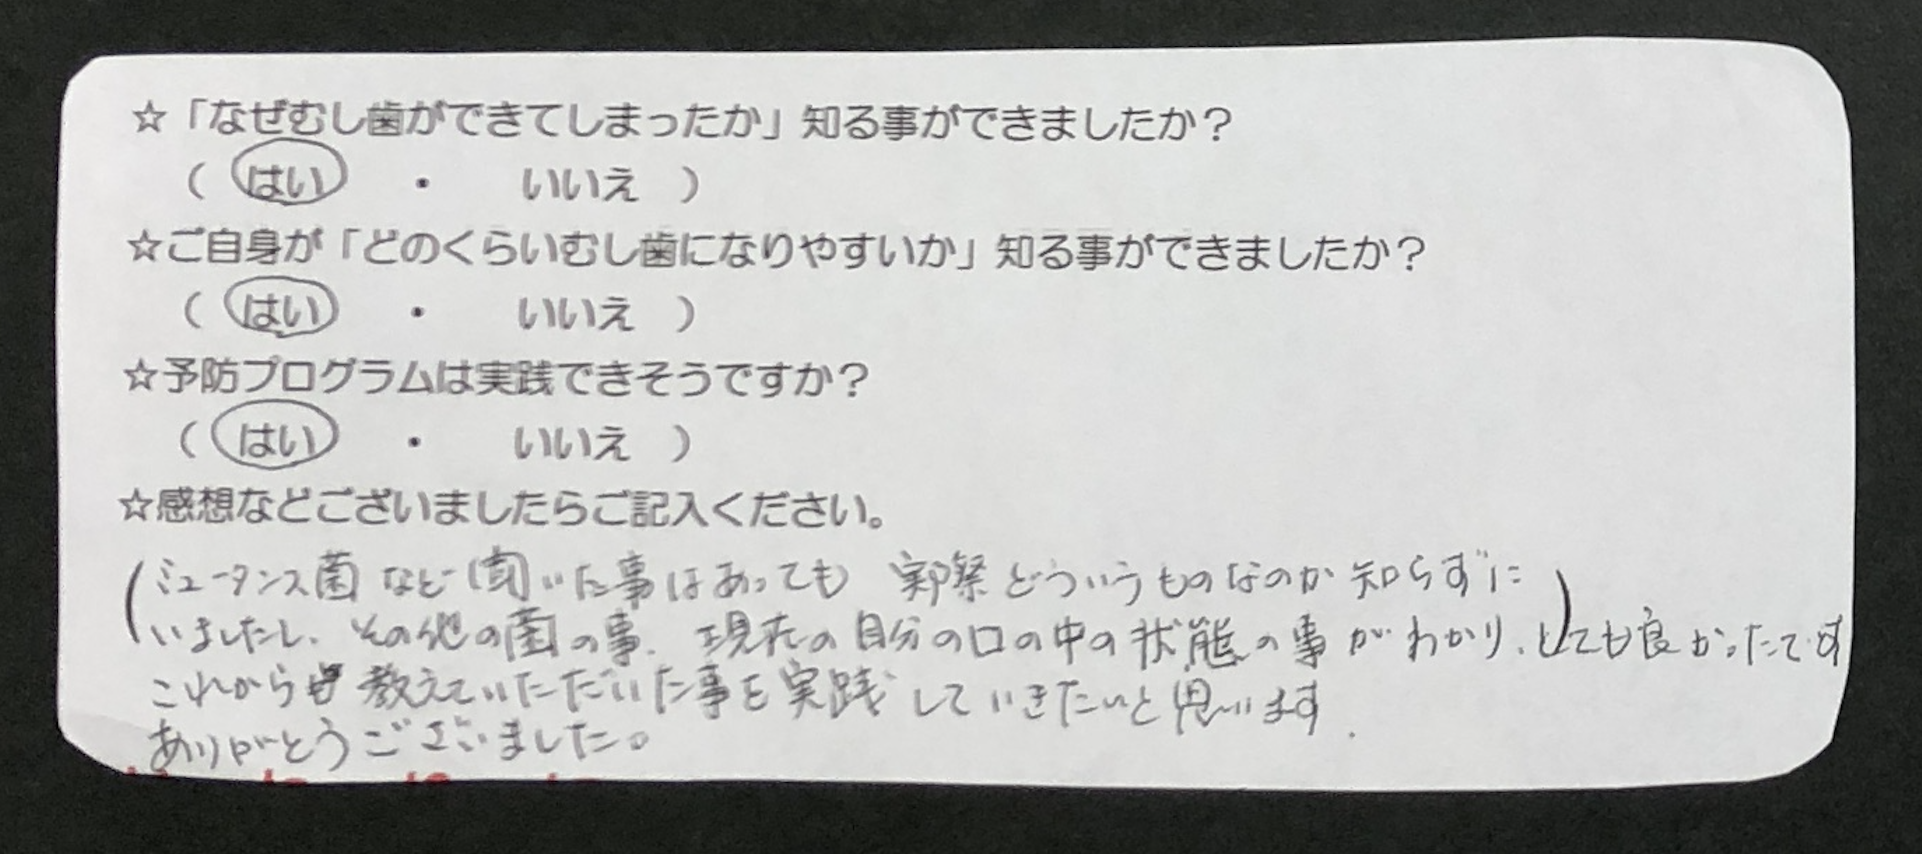 ☆「なぜむし歯ができてしまったか」知る事ができましたか？
（ はい ・ いいえ ）
☆ご自身が「どのくらいむし歯になりやすいか」知る事ができましたか？
（ はい ・ いいえ ）
☆予防プログラムは実践できそうですか？
（ はい ・ いいえ ）
☆感想などございましたらご記入ください。
（ミュータンス菌など聞いた事はあっても 実際どういうものなのか知らずに）
いましたし、その他の菌の事、現在の自分の口の中の状態の事がわかり、とても良かったです
これから 教えていただいた事を実践していきたいと思います.
ありがとうございました。